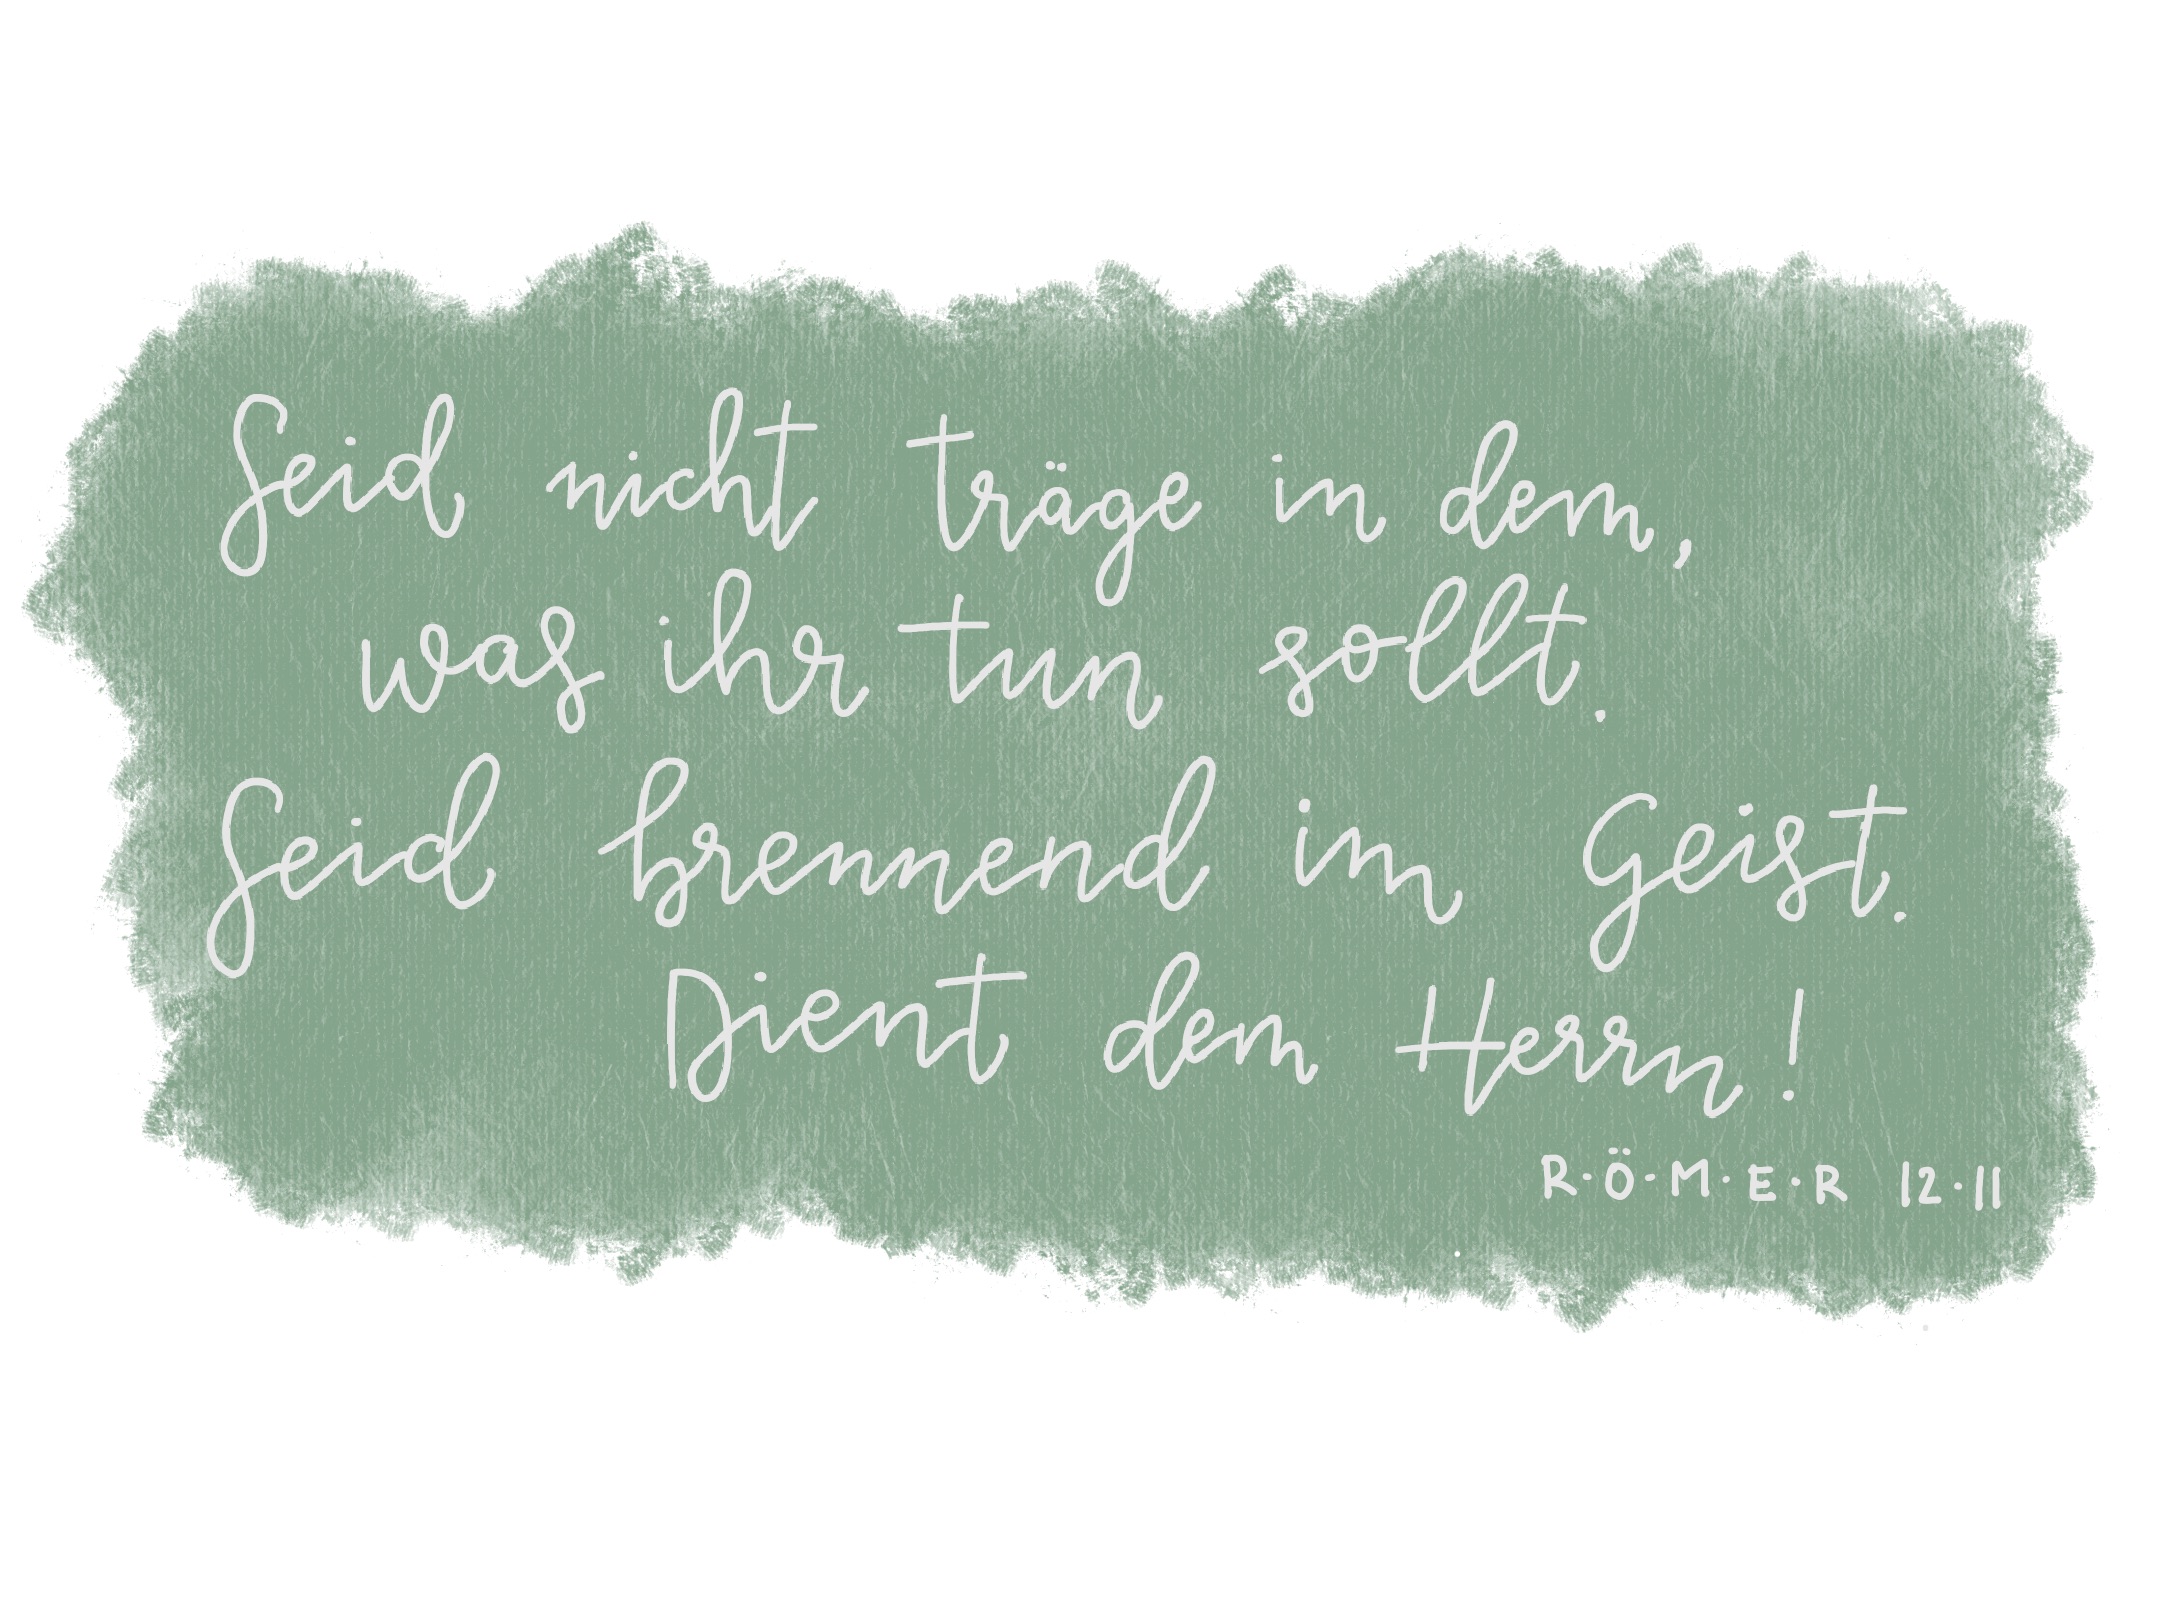 Seid nicht träge in dem,
was ihr tun sollt.
Seid brennend im Geist.
Dient dem Herrn!
R·Ö·M·E·R 12·11